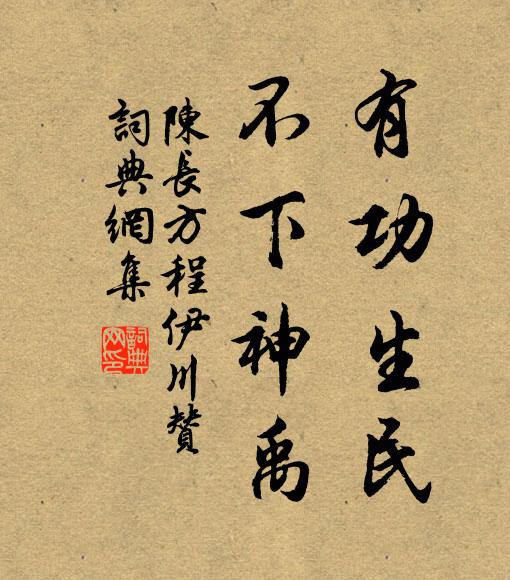 有功生民
不下神禹
陳長方程伊川贊
詞典網集
詞典網印